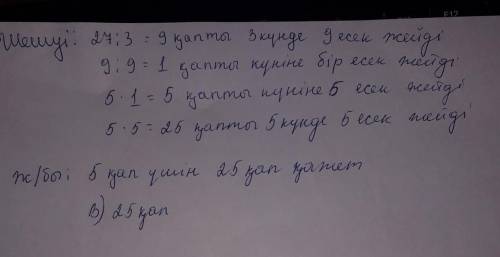 Шешуі: 27:3 = 9 қапты 3 күнде 9 есек жейді
9:9 = 1 қапты күніне бір есек жейді
5·1 = 5 қапты күніне 5 есек жейді
5·5 = 25 қапты 5 күнде 5 есек жейді
ж/бы: 5 қап үшін 25 қап қажет
В) 25 қап